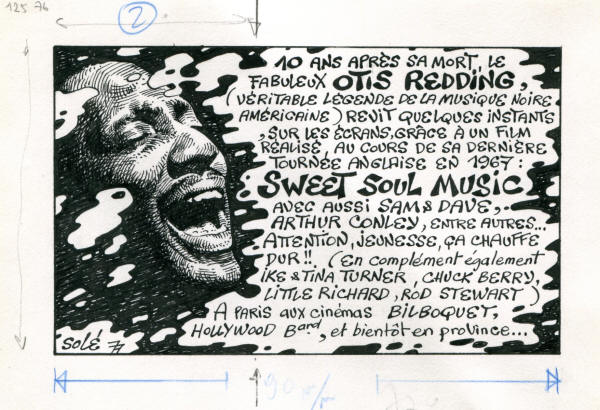 125 76
2
10 ANS APRÈS SA MORT, LE
FABULEUX OTIS REDDING,
(VÉRITABLE LÉGENDE DE LA MUSIQUE NOIRE
AMÉRICAINE) REVIT QUELQUES INSTANTS
SUR LES ÉCRANS, GRÂCE À UN FILM
RÉALISÉ, AU COURS DE SA DERNIÈRE
TOURNÉE ANGLAISE EN 1967 :
SWEET SOUL MUSIC
AVEC AUSSI SAM & DAVE,
ARTHUR CONLEY, ENTRE AUTRES...
ATTENTION, JEUNESSE, ÇA CHAUFFE
DUR!! (En complément également
IKE & TINA TURNER, CHUCK BERRY,
LITTLE RICHARD, ROD STEWART)
À PARIS aux cinémas BILBOQUET,
HOLLYWOOD Bard, et bientôt en province...
Solé 77